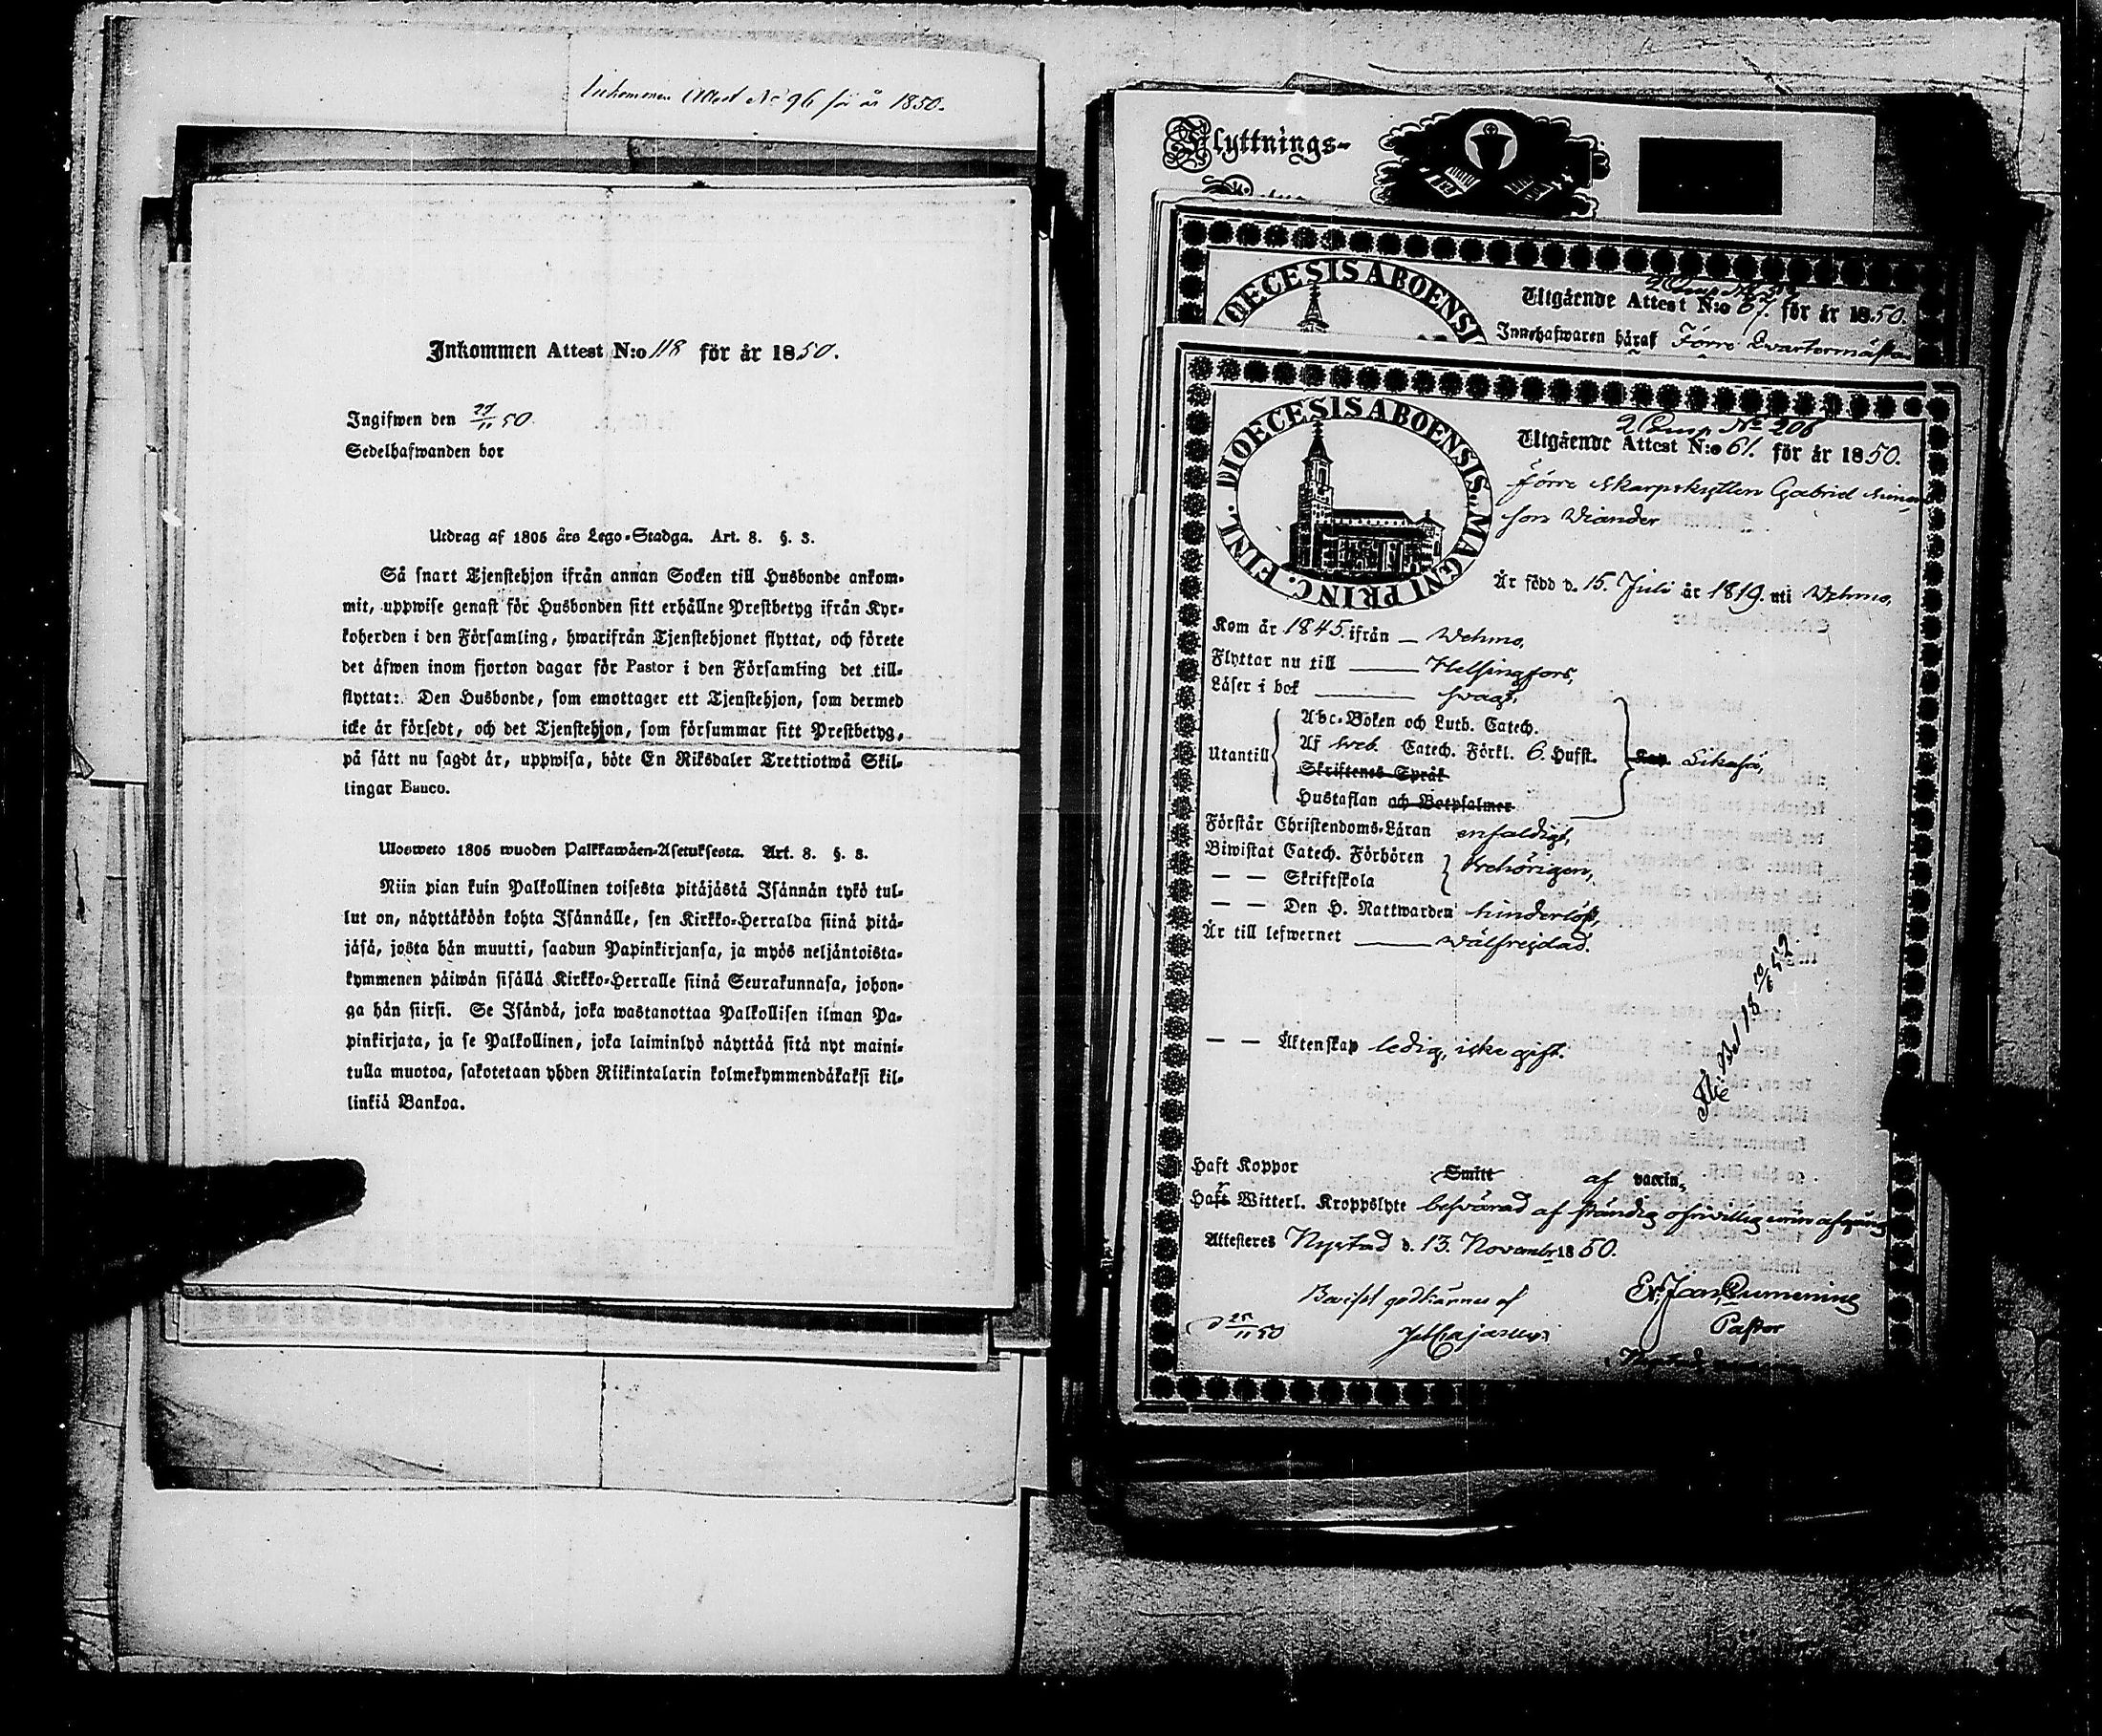 Inkommen Attest No 96 för år 1850.
Inkommen Attest N:o 118 för år 1850.
Ingifwen den 27/11 50.
Sedelhafwanden bor
Utdrag af 1805 års Lego-Stadga. Art. 8. §. 3.
Så snart Tjenstehjon ifrån annan Socken till Husbonde ankom-
mit, uppwise genast för Husbonden sitt erhållne Prestbetyg ifrån Kyr-
koherden i den Församling, hwarifrån Tjenstehjonet flyttat, och förete
det äfwen inom fjorton dagar för Pastor i den Församling det till-
flyttat: Den Husbonde, som emottager ett Tjenstehjon, som dermed
icke är försedt, och det Tjenstehjon, som försummar sitt Prestbetyg,
på sätt nu sagdt är, uppwisa, böte En Riksdaler Trettiotwå Skil-
lingar Banco.
Ulosweto 1805 wuoden Palkkawäen-Asetuksesta. Art. 8. §. 3.
Niin pian kuin Palkollinen toisesta pitäjästä Isännän tykö tul-
lut on, näyttäköön kohta Isännälle, sen Kirkko-Herralda siinä pitä-
jäsä, josta hän muutti, saadun Papinkirjansa, ja myös neljäntoista-
kymmenen päiwän sisällä Kirkko-Herralle siinä Seurakunnasa, johon-
ga hän siirsi. Se Isändä, joka wastanottaa Palkollisen ilman Pa-
pinkirjata, ja se Palkollinen, joka laiminlyö näyttää sitä nyt maini-
tulla muotoa, sakotetaan yhden Riikintalarin kolmekymmendäkaksi kil-
linkiä Bankoa.
Flyttnings-
DIOECESIS ABOENSI
Utgående Attest N:o 67. för år 1850.
Innehafwaren häraf Förre Qvartermästa
DIOECESIS ABOENSIS. MAGNI PRINC. FINL.
2 Comp No 206
Utgående Attest N:o 61. för år 1850.
Förre Skarpskytten Gabriel Simons
son Viander
Är född d. 15. Juli år 1819. uti Wehmo,
Kom år 1845. ifrån — Wehmo,
Flyttar nu till Helsingfors,
Läser i bok svagt,
Abc-Boken och Luth. Catech.
Utantill Af Sveb. Catech. Förkl. 6. Hufst. Kap. Likaså,
Skriftenes Språk
Hustaflan och Botpsalmer
Förstår Christendoms-Läran enfaldigt,
Biwistat Catech. Förhören
— — Skriftskola behörigen,
— — Den H. Nattwarden hinderlöst,
Är till lefwernet wälfrejdad.
— — Äktenskap ledig, icke gift.
Haft Koppor Smitt af vaccin,
Haft Witterl. Kroppslyte besvärad af ständig ofrivillig urin afgång
Attesteres Nystad d. 13. November 1850.
Bevisst godkännes af
d 25/11 50
Pastor